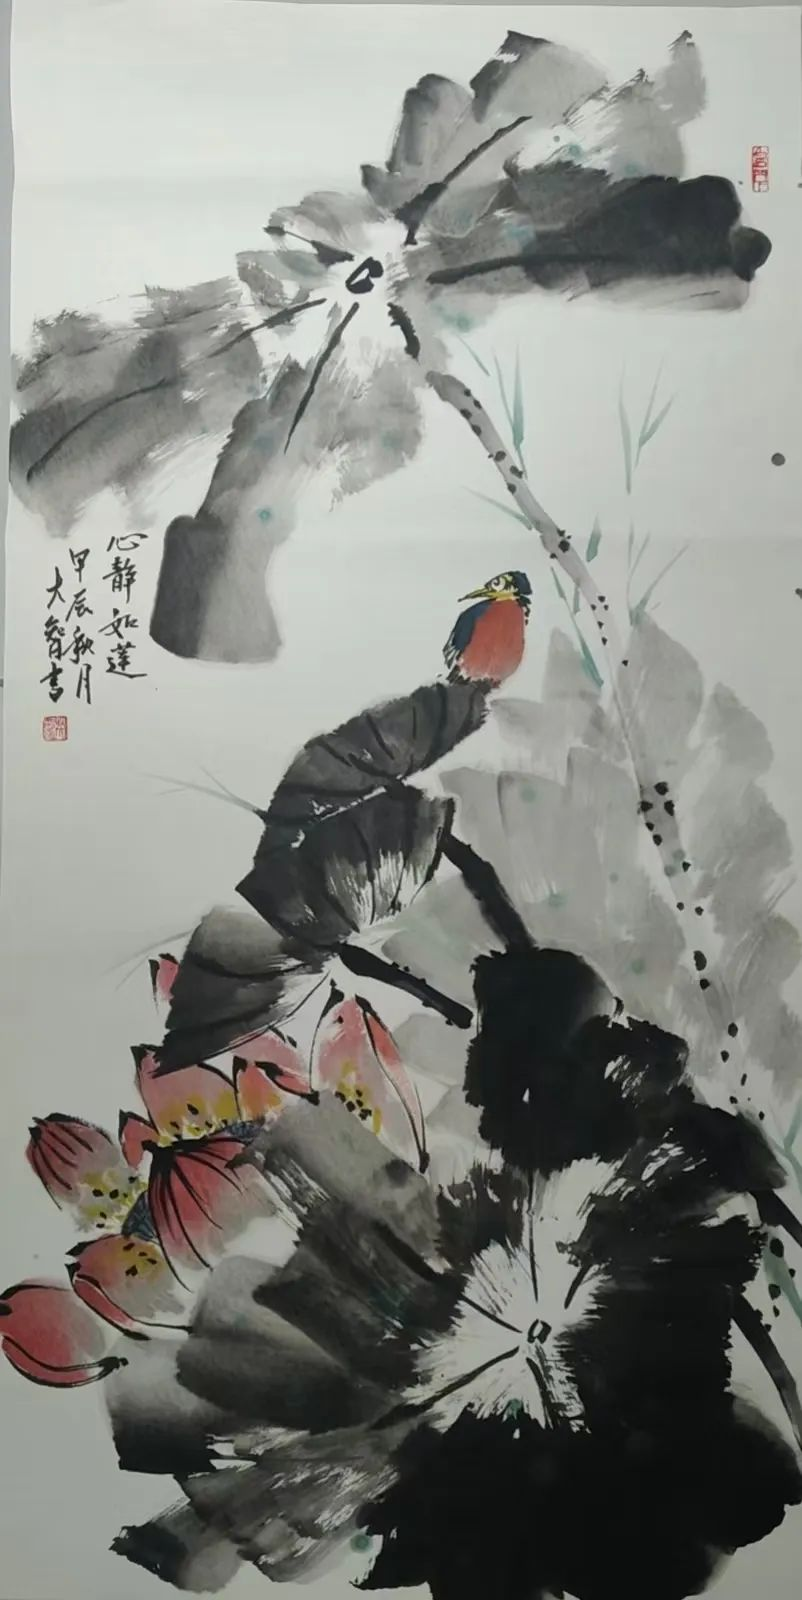 心静如莲
甲辰秋月
大智书